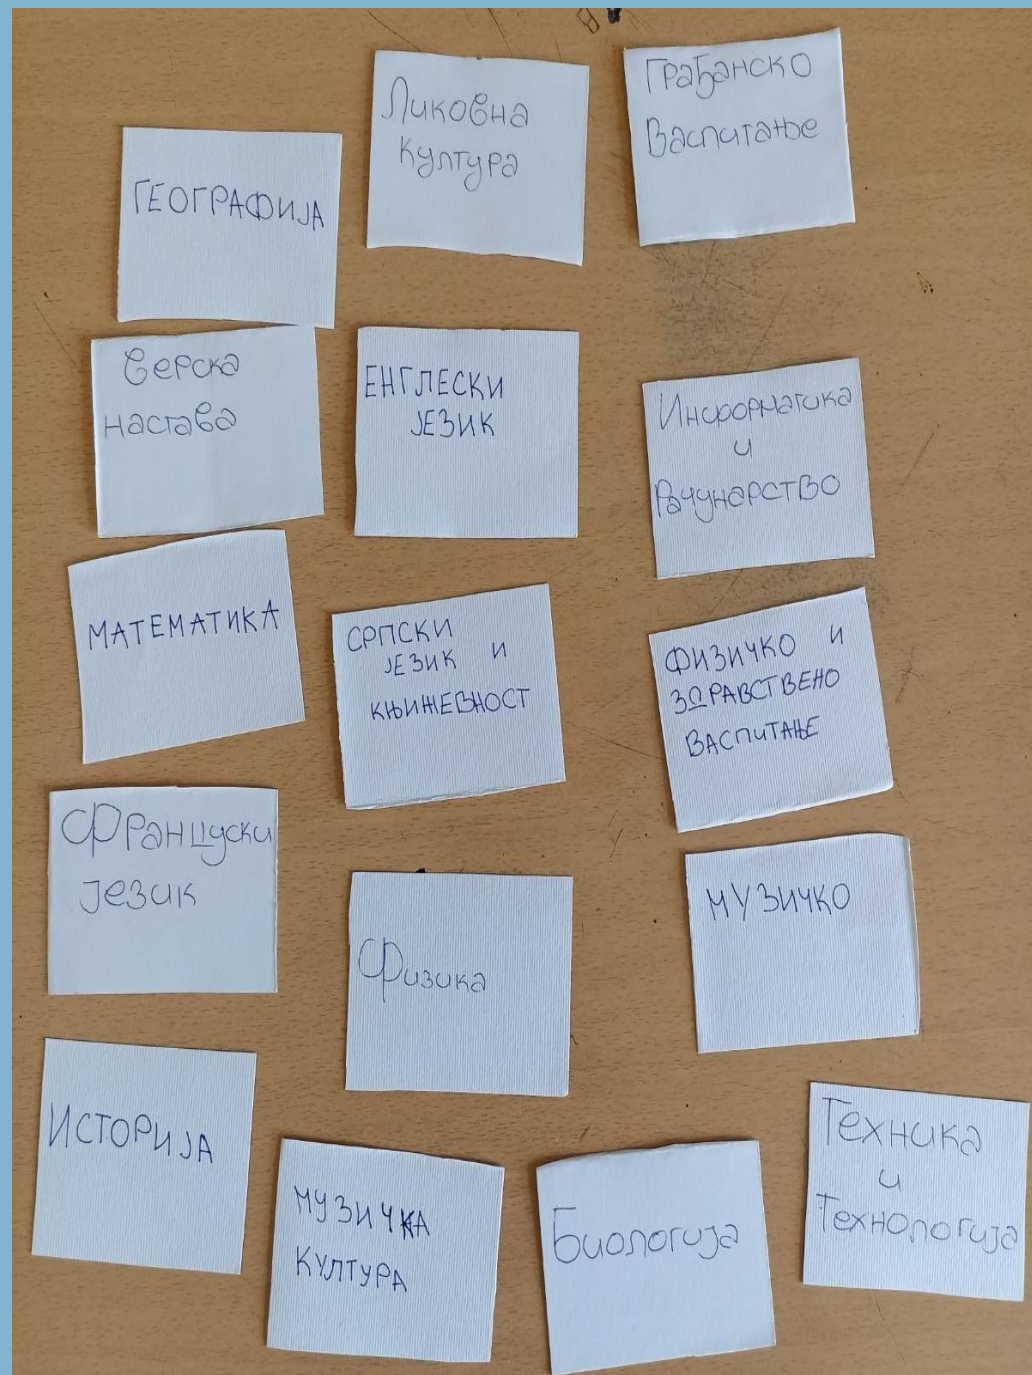 Ликовна
Култура
Грађанско
Васпитање
ГЕОГРАФИЈА
Верска
настава
ЕНГЛЕСКИ
ЈЕЗИК
Информатика
и
Рачунарство
МАТЕМАТИКА
СРПСКИ
ЈЕЗИК И
КЊИЖЕВНОСТ
ФИЗИЧКО И
ЗДРАВСТВЕНО
ВАСПИТАЊЕ
Француски
језик
Физика
МУЗИЧКО
ИСТОРИЈА
МУЗИЧКА
КУЛТУРА
Биологија
Техника
и
Технологија